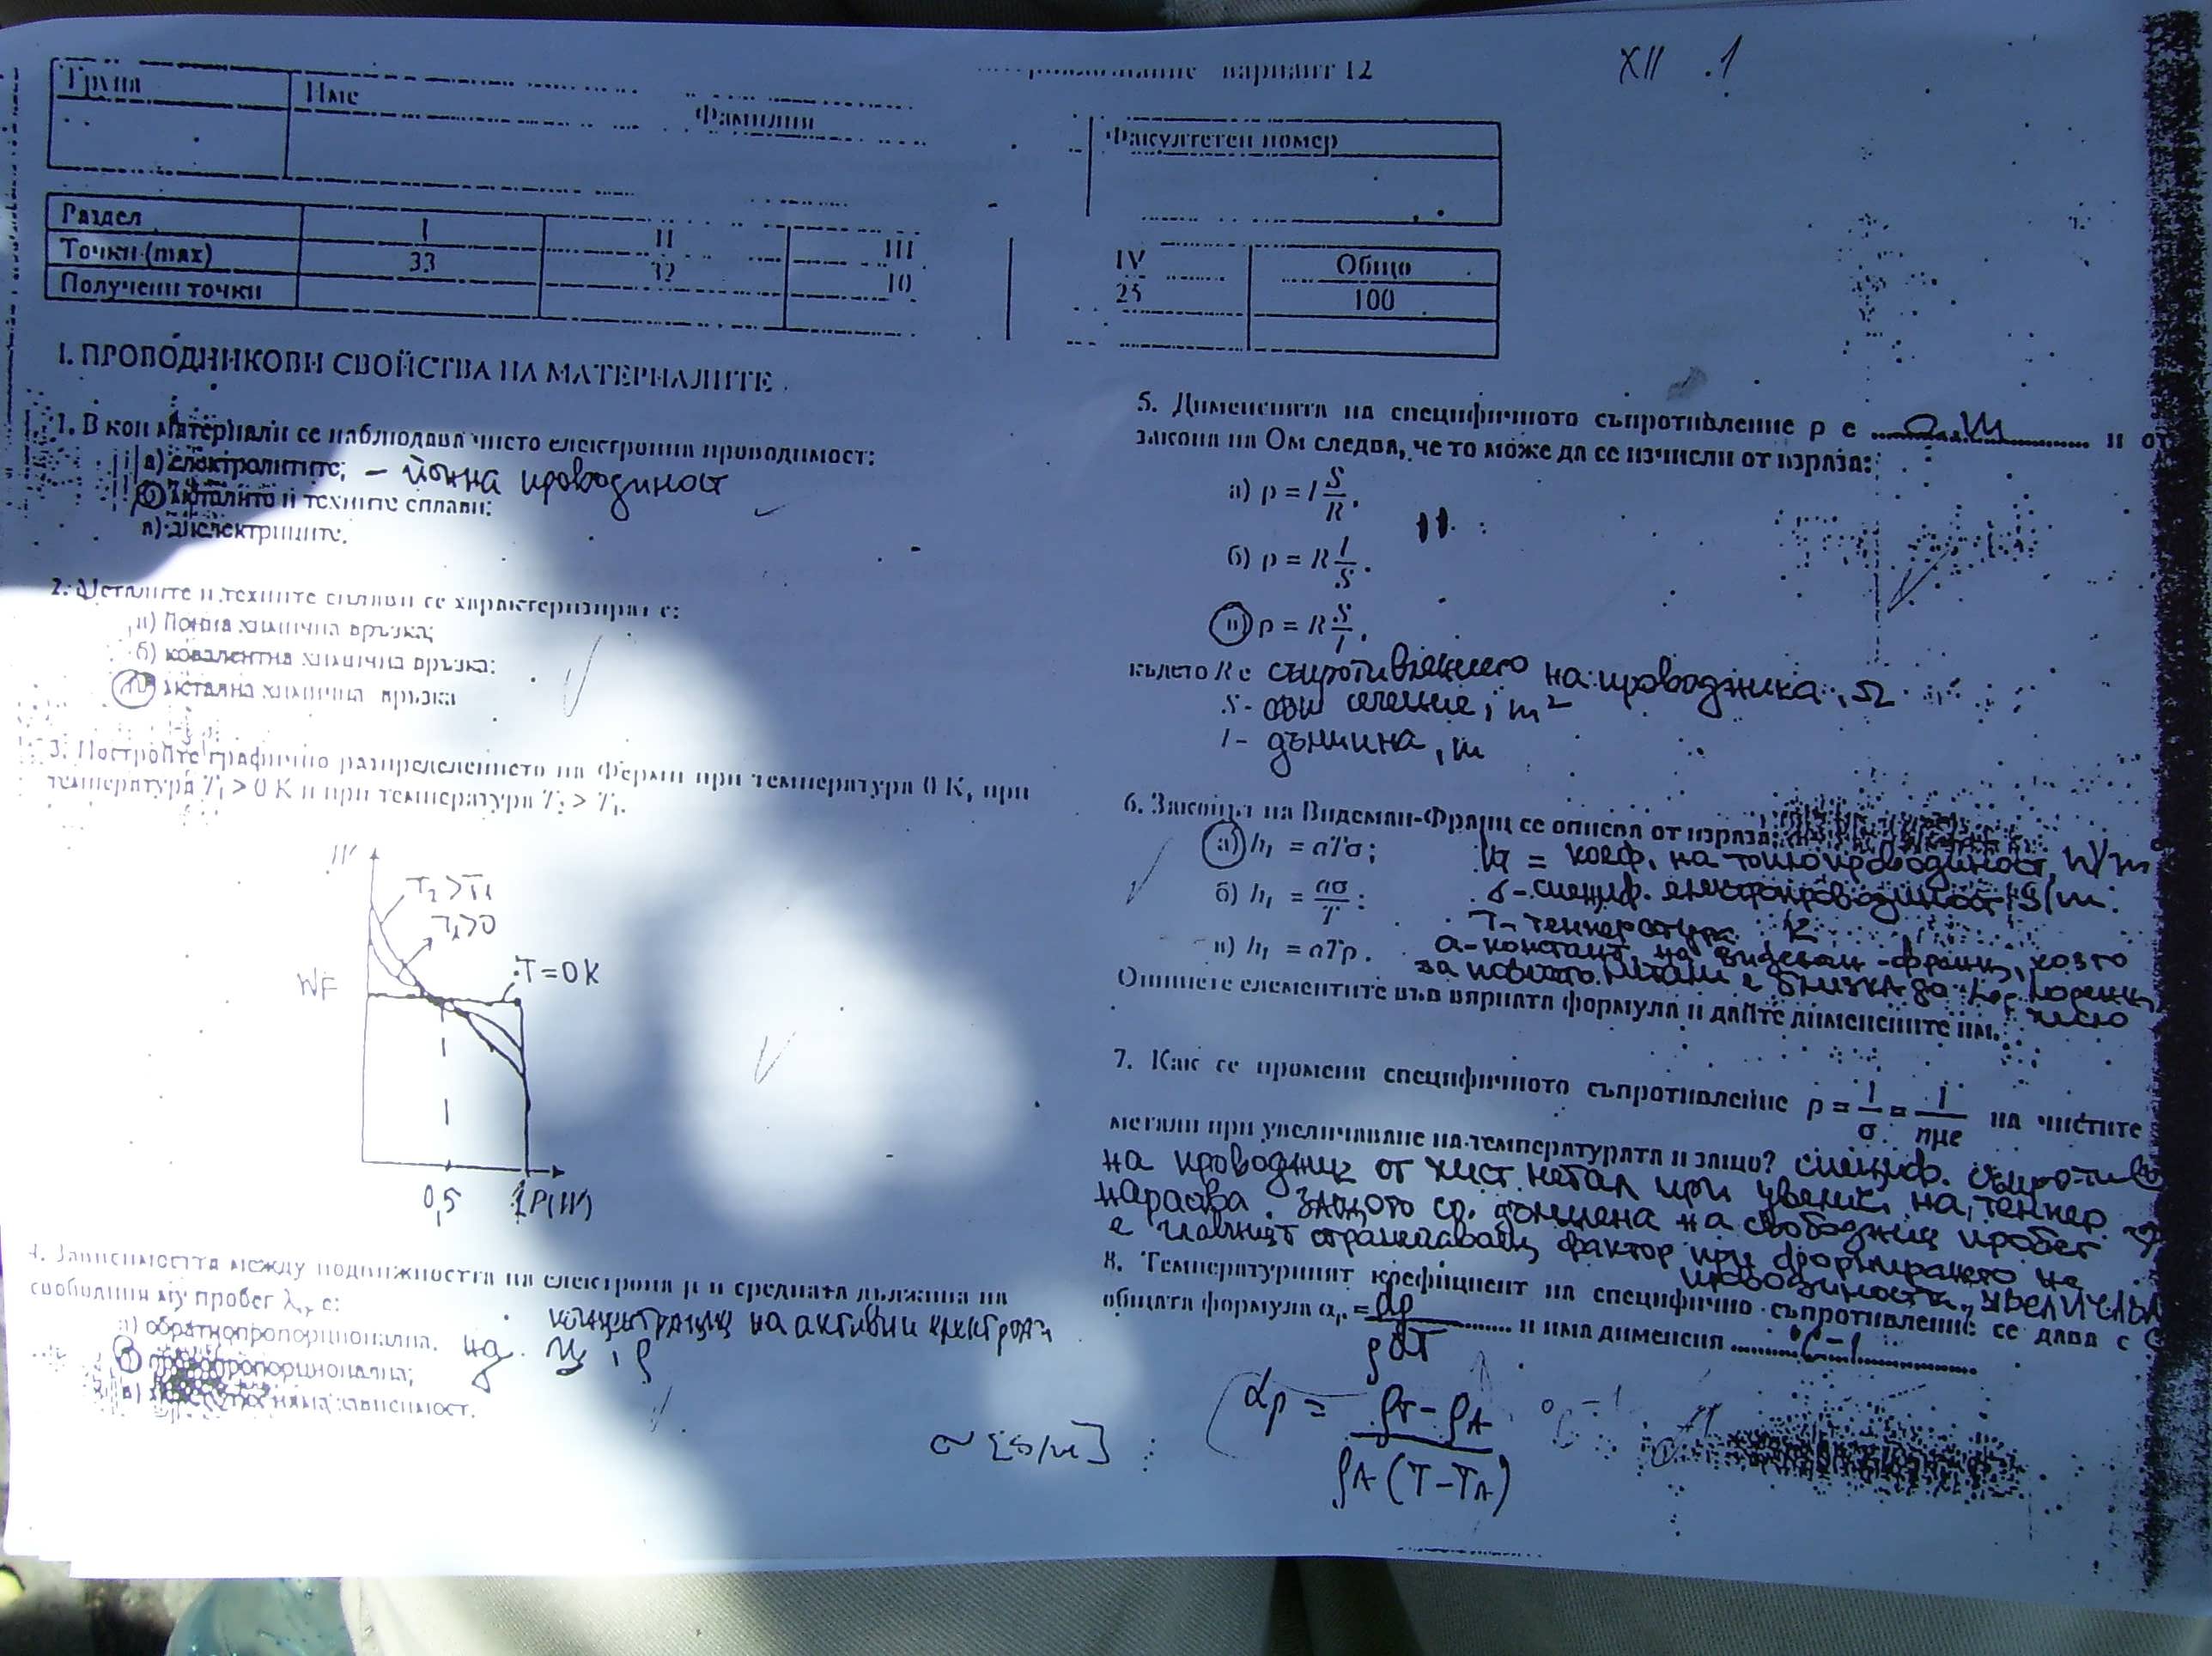 вариант 12
XII .1
Група
Име
Фамилия
Факултетен номер
Раздел I II III IV Общо
Точки (max) 33 32 10 25 100
Получени точки
I. ПРОВОДНИКОВИ СВОЙСТВА НА МАТЕРИАЛИТЕ
1. В кои материали се наблюдава чисто електронна проводимост:
а) електролитите; – йонна проводимост
б) металите и техните сплави;
в) диелектриците.
2. Металите и техните сплави се характеризират с:
а) йонна химична връзка;
б) ковалентна химична връзка;
в) метална химична връзка
3. Постройте графично разпределението на Ферми при температура 0 K, при
температура T₁ > 0 K и при температура T₂ > T₁.
W
T₂ > T₁
T₁>0
T = 0 K
WF
0,5 1 P(W)
4. Зависимостта между подвижността на електрона μ и средната дължина на
свободния му пробег λ е:
а) обратнопропорционална.
б) правопропорционална;
в) няма зависимост.
концентрация на активни електрони
σ [S/m]
5. Дименсията на специфичното съпротивление ρ е Ω.m и от
закона на Ом следва, че то може да се изчисли от израза:
а) ρ = l S/R.
б) ρ = R l/S.
в) ρ = R S/l,
където R е съпротивлението на проводника, Ω
S - сечение, m²
l - дължина, m
6. Законът на Видеман-Франц се описва от израза:
а) h₁ = aTσ;
б) h₁ = aσ/T;
в) h₁ = aTρ.
коеф. на топлопроводимост, W/m
σ - специф. електропроводимост, S/m.
T - температура K
a - константа на Видеман-Франц, която
за повечето метали е близка до
число
Опишете елементите във вярната формула и дайте дименсиите им.
7. Как се променя специфичното съпротивление ρ = 1/σ = 1/nμe на чистите
метали при увеличаване на температурата и защо? специф. съпротив
на проводник от чист метал при увелич. на темпер.
нараства. Защото ср. дължина на свободния пробег
е главният фактор при формирането на
проводимостта
8. Температурният коефициент на специфично съпротивление се дава с
общата формула αρ = dρ/ρdT и има дименсия
αρ = ρT – ρA / ρA (T – TA)
°C⁻¹